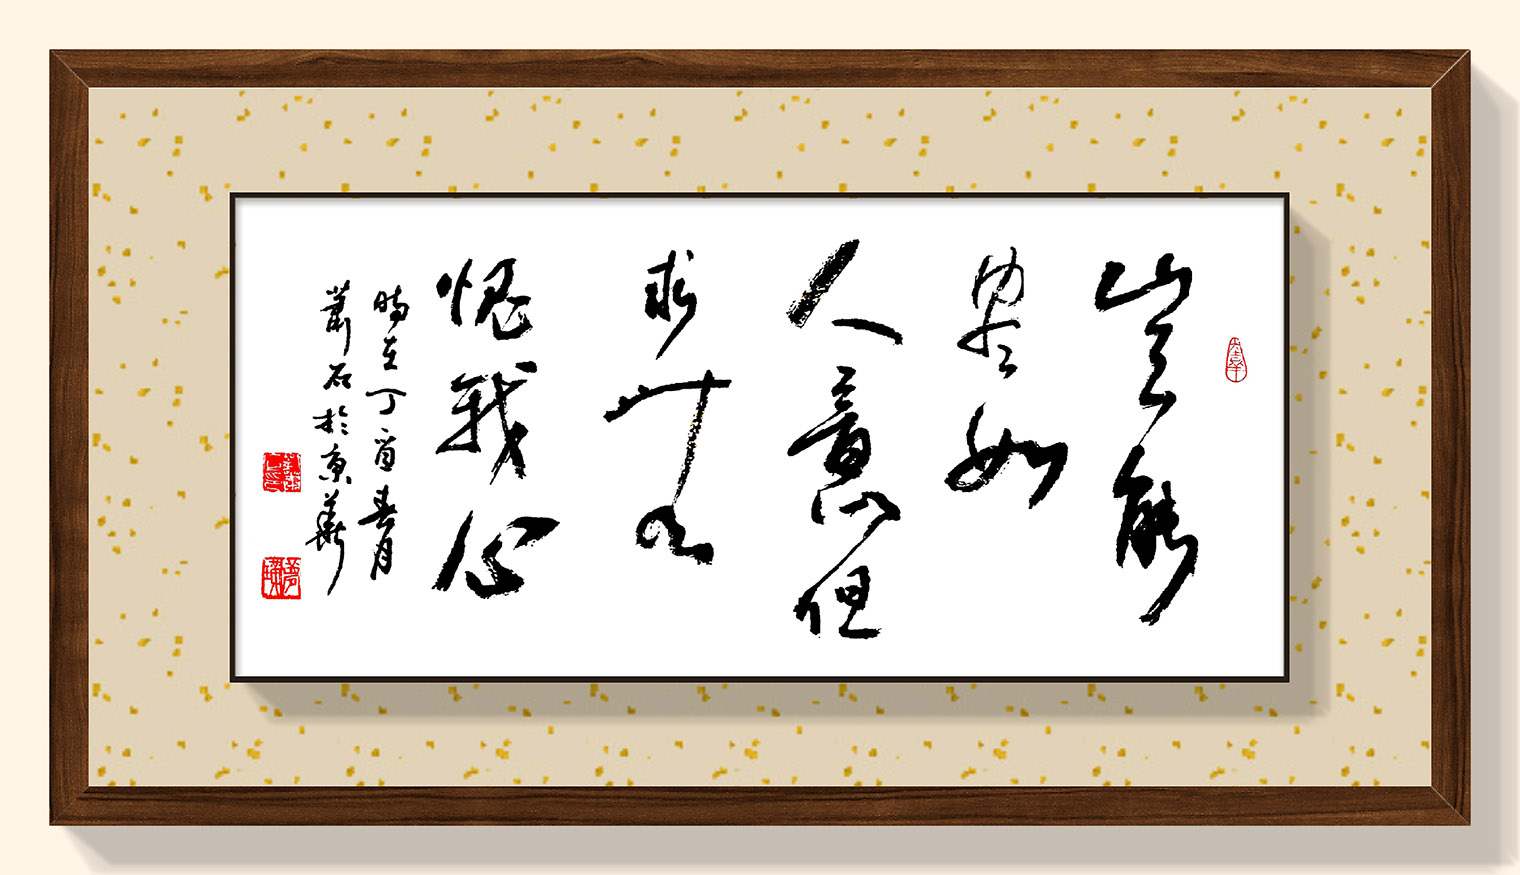 岂能
尽如
人意但
求无
愧我心
时在丁酉春月
萧石於京华